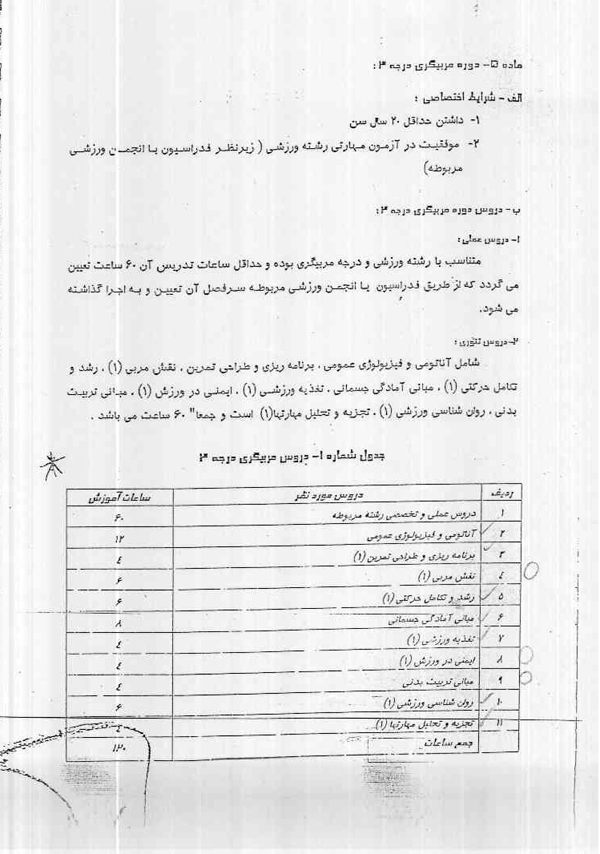 ماده ۵- دوره مربیگری درجه ۳ :
الف - شرایط اختصاصی :
۱- داشتن حداقل ۲۰ سال سن
۲- موفقیت در آزمون مهارتی رشته ورزشی ( زیرنظر فدراسیون یا انجمن ورزشی
مربوطه)
ب- دروس دوره مربیگری درجه ۳ :
۱- دروس عملی :
متناسب با رشته ورزشی و درجه مربیگری بوده و حداقل ساعات تدریس آن ۶۰ ساعت تعیین
می گردد که از طریق فدراسیون یا انجمن ورزشی مربوطه سرفصل آن تعیین و به اجرا گذاشته
می شود.
۲- دروس تئوری :
شامل آناتومی و فیزیولوژی عمومی ، برنامه ریزی و طراحی تمرین ، نقش مربی (۱) ، رشد و
تکامل حرکتی (۱) ، مبانی آمادگی جسمانی ، تغذیه ورزشی (۱) ، ایمنی در ورزش (۱) ، مبانی تربیت
بدنی ، روان شناسی ورزشی (۱) ، تجزیه و تحلیل مهارتها(۱) است و جمعا" ۶۰ ساعت می باشد .
جدول شماره ۱- دروس مربیگری درجه ۳
ردیف دروس مورد نظر ساعات آموزش
۱ دروس عملی و تخصصی رشته مربوطه ۶۰
۲ آناتومی و فیزیولوژی عمومی ۱۲
۳ برنامه ریزی و طراحی تمرین (۱) ۴
۴ نقش مربی (۱) ۶
۵ رشد و تکامل حرکتی (۱) ۶
۶ مبانی آمادگی جسمانی ۸
۷ تغذیه ورزشی (۱) ۴
۸ ایمنی در ورزش (۱) ۴
۹ مبانی تربیت بدنی ۴
۱۰ روان شناسی ورزشی (۱) ۶
۱۱ تجزیه و تحلیل مهارتها (۱) ۶
جمع ساعات ۱۲۰